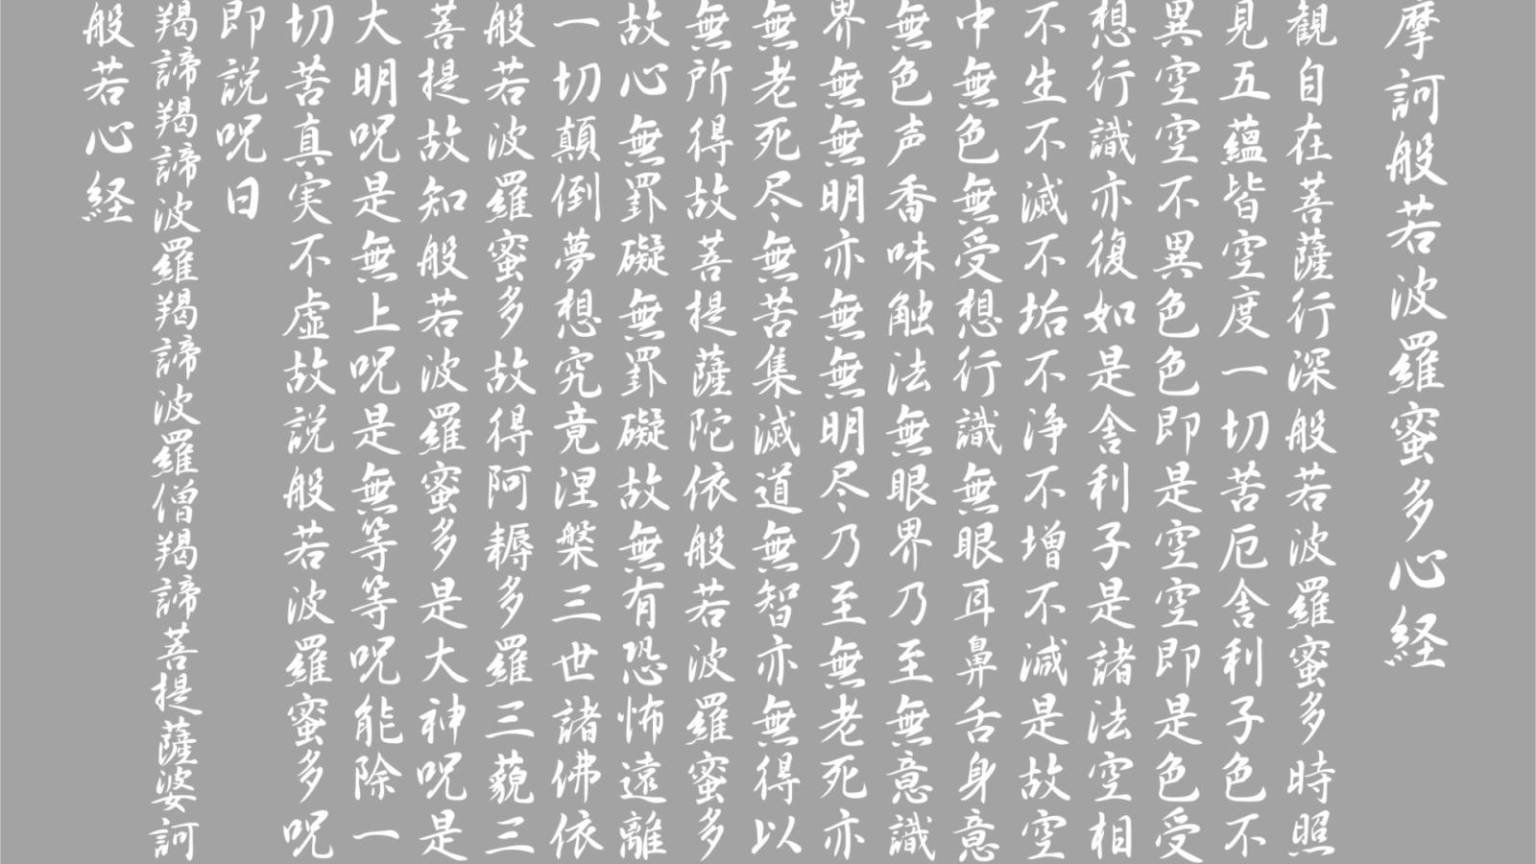 摩訶般若波羅蜜多心経
観自在菩薩行深般若波羅蜜多時照
見五蘊皆空度一切苦厄舎利子色不
異空空不異色色即是空空即是色受
想行識亦復如是舎利子是諸法空相
不生不滅不垢不浄不増不減是故空
中無色無受想行識無眼耳鼻舌身意
無色声香味触法無眼界乃至無意識
界無無明亦無無明尽乃至無老死亦
無老死尽無苦集滅道無智亦無得以
無所得故菩提薩陀依般若波羅蜜多
故心無罫礙無罫礙故無有恐怖遠離
一切顛倒夢想究竟涅槃三世諸佛依
般若波羅蜜多故得阿耨多羅三藐三
菩提故知般若波羅蜜多是大神呪是
大明呪是無上呪是無等等呪能除一
切苦真実不虚故説般若波羅蜜多呪
即説呪日
羯諦羯諦波羅羯諦波羅僧羯諦菩提薩婆訶
般若心経